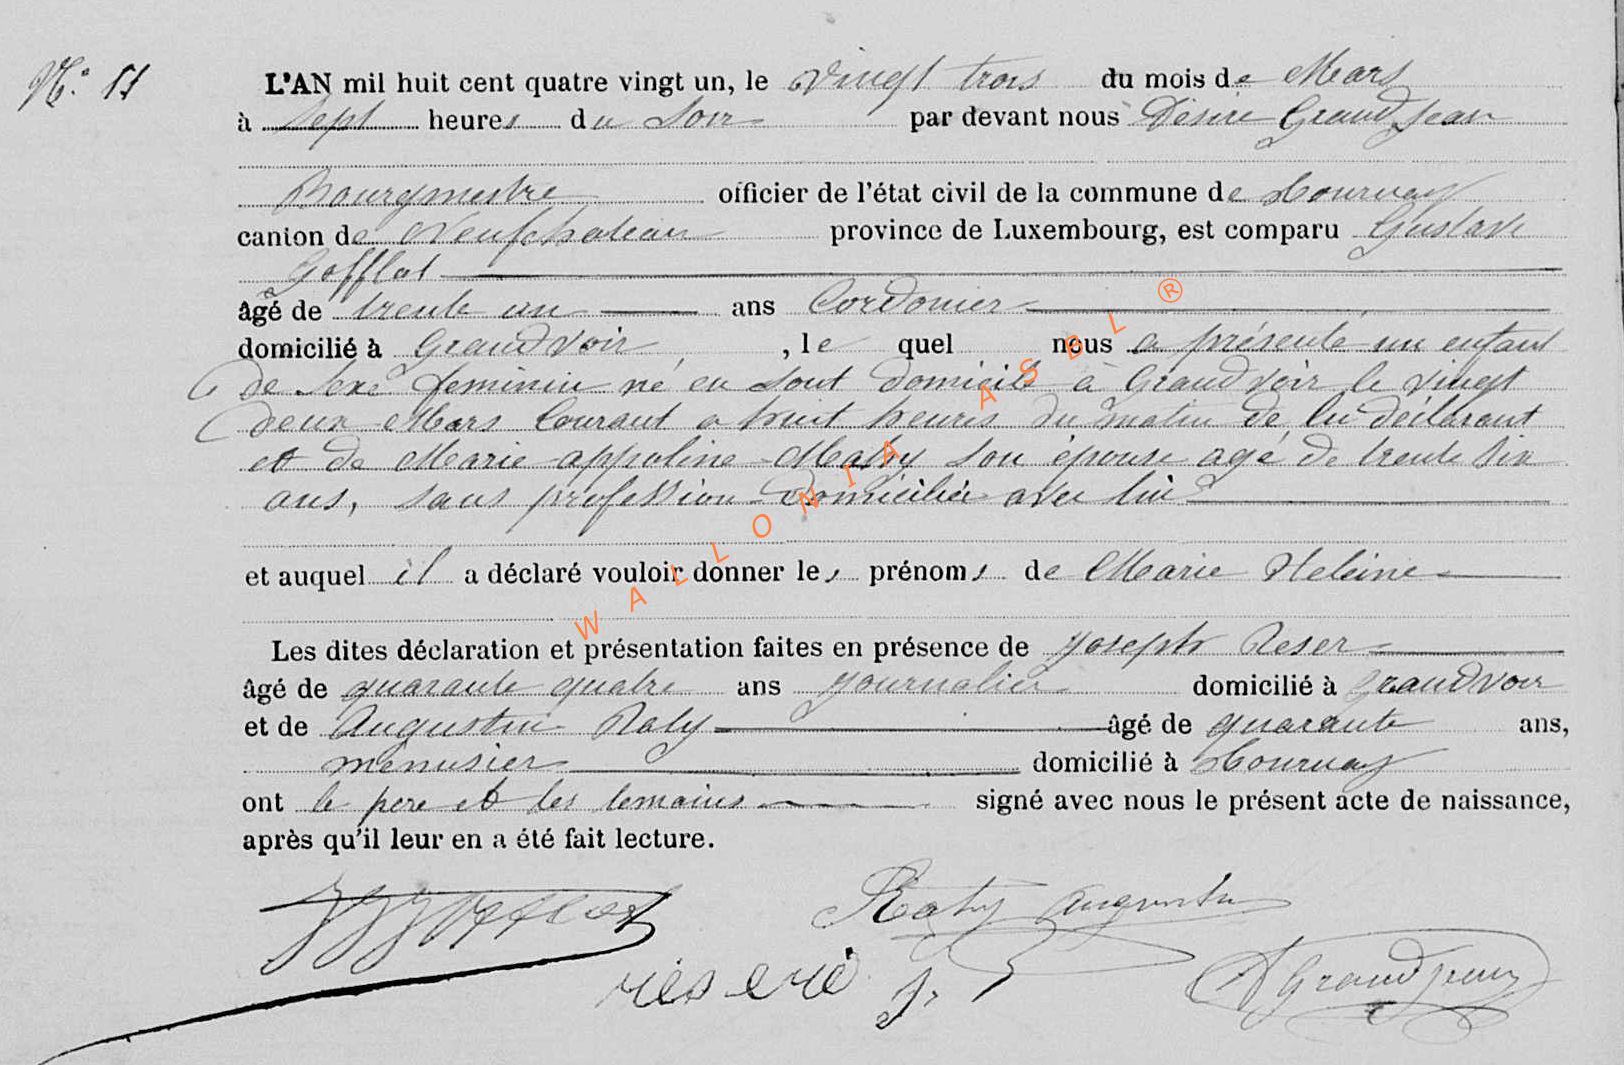 N.° 11
L'AN mil huit cent quatre vingt un, le vingt trois du mois de Mars
à Sept heures du Soir par devant nous Désiré Grandjean
Bourgmestre officier de l'état civil de la commune de Tournay
canton de Neufchateau province de Luxembourg, est comparu Gustave
Gofflot
âgé de trente un ans Cordonier
domicilié à Grandvoir, le quel nous a présenté un enfant
de Sexe feminin né en Sont domicile à Grandvoir le vingt
deux Mars Courant a huit heures du matin de lui déclarant
et de Marie appoline Mathy Son épouse agé de trente Six
ans, sans profession Domiciliée avec lui
et auquel il a déclaré vouloir donner les prénoms de Marie Heleine
Les dites déclaration et présentation faites en présence de Joseph Reser
âgé de quarante quatre ans Journalier domicilié à Grandvoir
et de Augustin Roty âgé de quarante ans,
menusier domicilié à Tournay
ont le pere et les temoins signé avec nous le présent acte de naissance,
après qu'il leur en a été fait lecture.
Augustin
J.
D Grandjean
WALLONIA ASBL ®